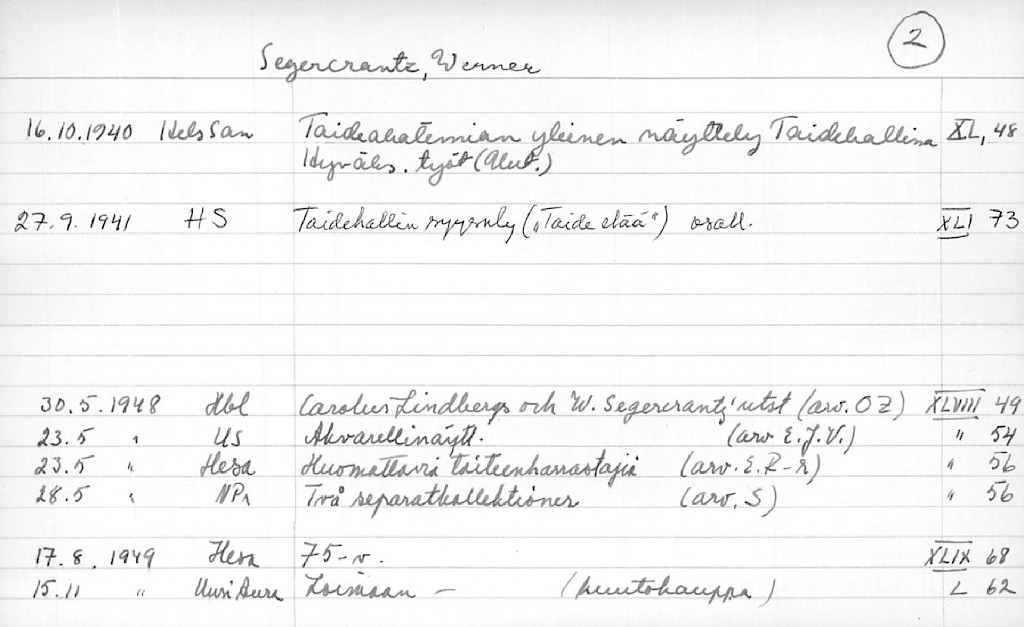 2
Segercrantz, Werner
16.10.1940 HelsSan Taideakatemian yleinen näyttely Taidehallissa XL, 48
Hyväks. työt (Alut.)
27.9.1941 HS Taidehallin syysnly („Taide elää“) osall. XLI 73
30.5.1948 Hbl Carolus Lindbergs och W. Segercrantz' utst (arv. OZ) XLVIII 49
23.5 " US Akvarellinäytt. (arv E.J.V.) " 54
23.5 " Hesa Huomattavia taiteenharrastajia (arv. E. R-r) " 56
28.5 " NPr Två separatkollektioner (arv. S) " 56
17.8.1949 Hesa 75-v. XLIX 68
15.11 " Uusi Aura Loimaan — (huutokauppa) L 62